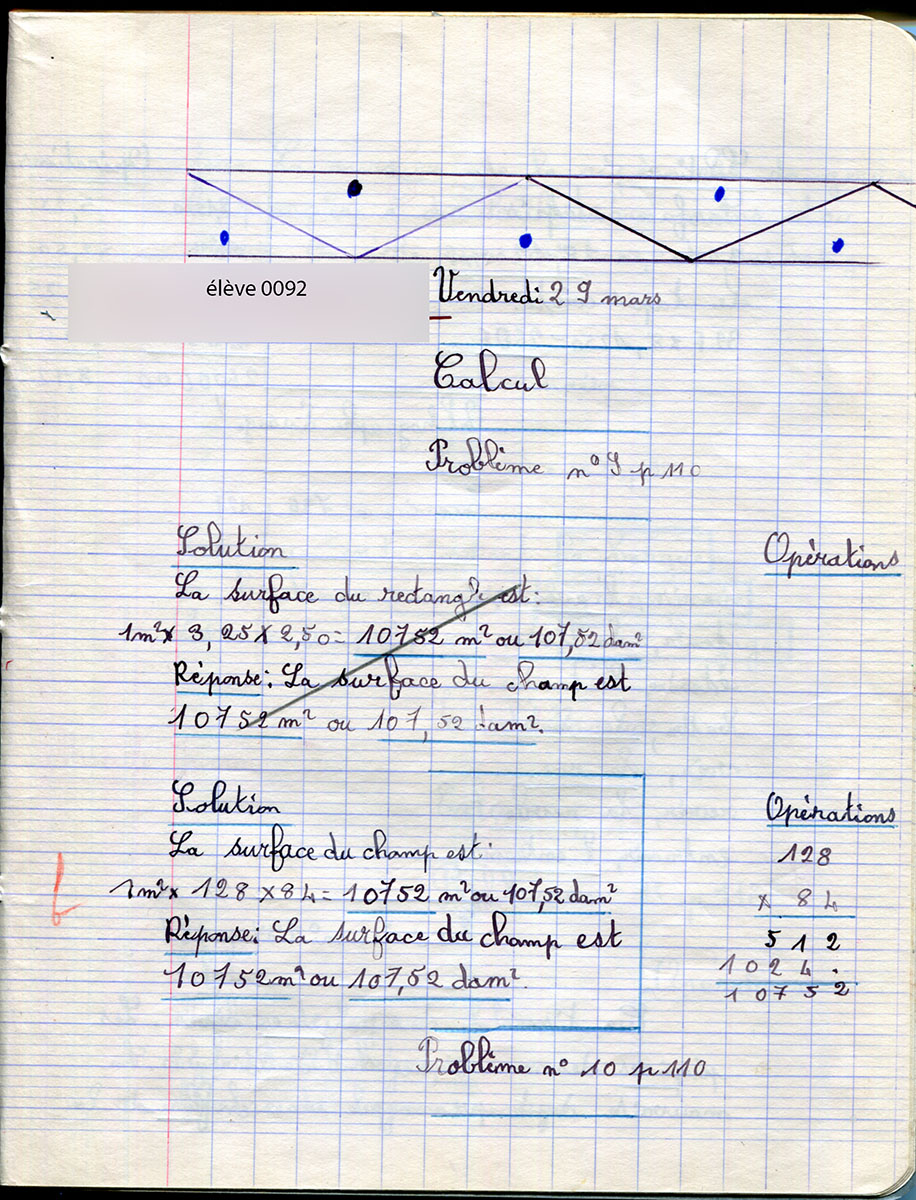 élève 0092
Vendredi 29 mars
Calcul
Problème n° 9 p 110
Solution
Opérations
La surface du est:
1m² × 3,25 × 2,50 = 10752 m² ou 107,52 dam²
Réponse: La surface du champ est
10752 m² ou 107,52 dam².
Solution
Opérations
La surface du champ est:
128
1m² × 128 × 84 = 10752 m² ou 107,52 dam²
× 84
Réponse: La surface du champ est
512
10752 m² ou 107,52 dam².
1024.
10752
Problème n° 10 p 110